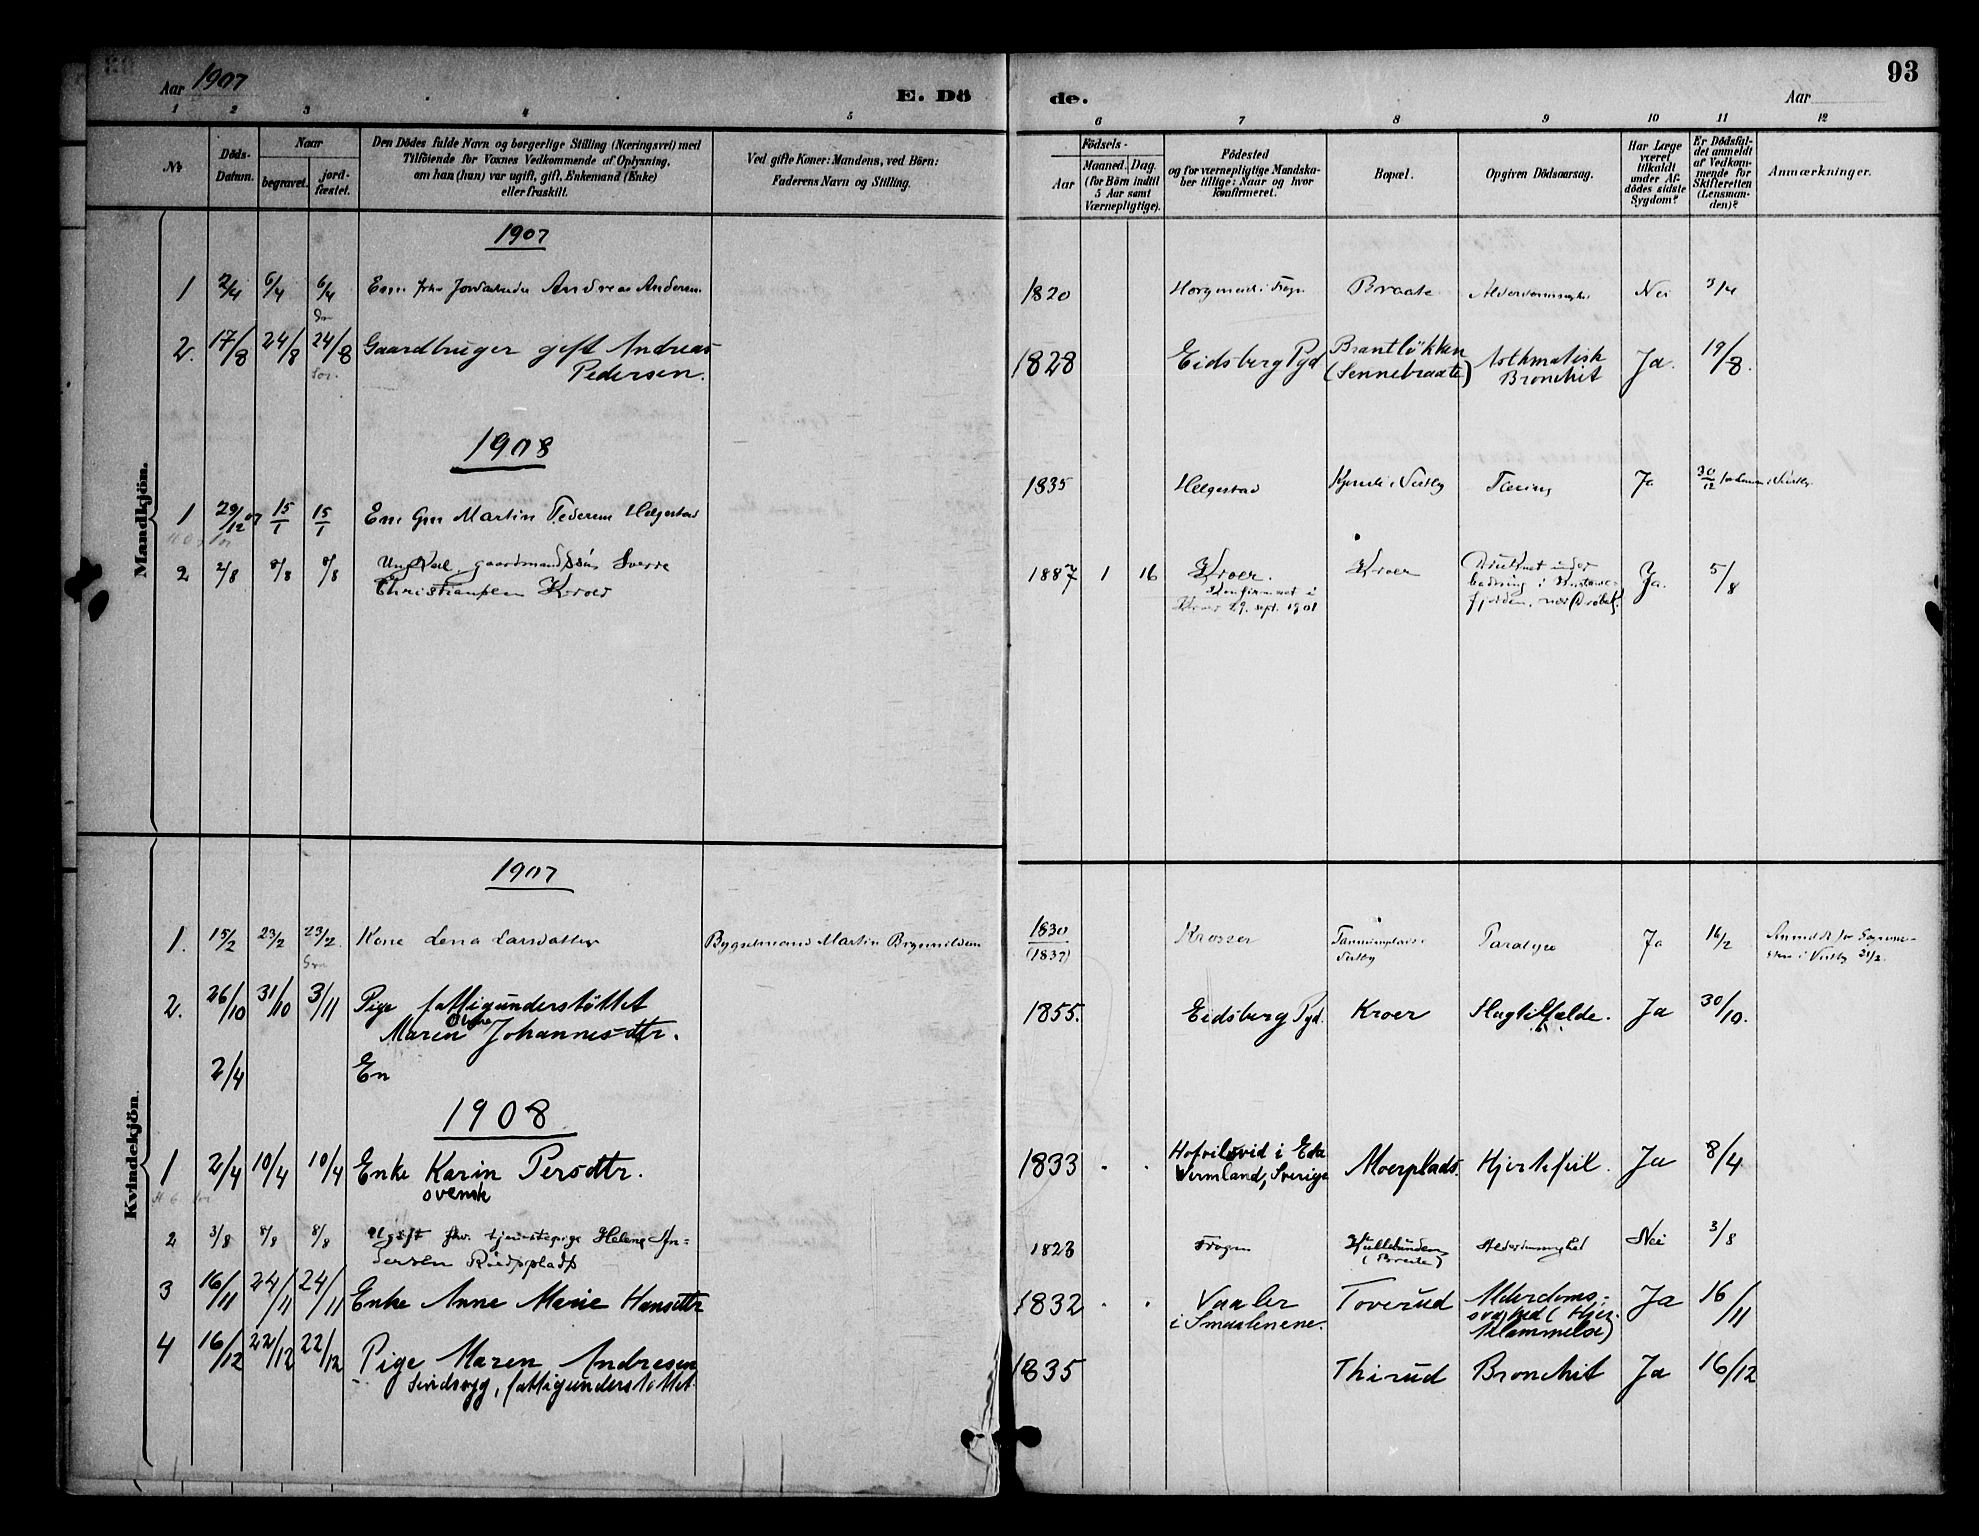 Aar 1907
E. Dö
de.
Aar
93
1 2 3 4 5 6 7 8 9 10 11 12
No.
Döds-
Datum.
Naar
begravet.
jord-
fæstet.
Den Dödes fulde Navn og borgerlige Stilling (Næringsvei) med
Tilföiende for Voxnes Vedkommende af Oplysning,
om han (hun) var ugift, gift, Enkemand (Enke)
eller fraskilt.
Ved gifte Koner: Mandens, ved Börn:
Faderens Navn og Stilling.
Födsels-
Aar
Maaned. Dag.
(for Börn indtil
5 Aar samt
Værnepligtige).
Födested
og for værnepligtige Mandska-
ber tillige: Naar og hvor
konfirmeret.
Bopæl.
Opgiven Dödsaarsag.
Har Læge
været
tilkaldt
under Af-
dödes sidste
Sygdom?
Er Dödsfal-
det anmeldt
af Vedkom-
mende for
Skifteretten
(Lensman-
den)?
Anmærkninger.
Mandkjön.
1907
1 2/4 6/4 6/4 Andreas Andersen 1820 Braate Nei 3/4
2. 17/8 24/8 24/8 Gaardbruger gift Andreas 1828 Eidsberg Pgd Brantløkken Asthmatisk Ja. 19/8.
Pedersen. (Sennebraate) Bronchit
1908
1 29/12 07 15/1 15/1 Em. Gm Martin Pedersen Helgestad 1835 Helgestad Tæring Ja 30/12
2 2/8 8/8 8/8 Ungkarl, gaardmandssøn Sverre 1887 1 16 Kroer. Kroer Druknet under Ja. 5/8
Christiansen Kroer Konfirmeret i badning i
Kroer 29. sept. 1901 fjorden, nær Drøbak.
Kvindekjön.
1907
1. 15/2 23/2 23/2 Kone Lena Larsdatter Bygselmand Martin Brynnildsen 1830 (1837) Krosser Paralyse Ja 16/2
2. 26/10 31/10 3/11 Pige fattigunderstøttet 1855. Eidsberg Pgd. Kroer Slagtilfælde. Ja 30/10.
Maren Olivia Johannesdtr.
2/4 En
1908
1 2/4 10/4 10/4 Enke Karin Persdttr. 1833 . . i Eda Moerplads. Hjertefeil. Ja 8/4
svensk Vermland, Sverige
2 3/8 8/8 8/8 Ugift fhv. tjenestepige Helene An- 1823 Frogn Hyllebunden Alderdomssvaghed Nei 3/8
dersen (Braate)
3 16/11 24/11 24/11 Enke Anne Marie Hansdttr 1832 . . Vaaler Toverud Alderdoms- Ja 16/11
i Smaalenene. svaghed (Hjer-
telammelse)
4 16/12 22/12 22/12 Pige Maren Andresen 1835 Thirud Bronchit Ja 16/12
Sindssyg, fattigunderstøttet.